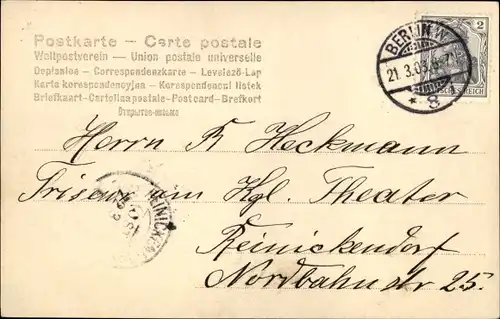 Postkarte – Carte postale
Weltpostverein – Union postale universelle
Dopisnice – Correspondenzkarte – Levelező-Lap
Karta korespondencyjna – Korespondencni listek
Briefkaart – Cartolina postale – Post card – Brefkort
Открытое письмо
BERLIN W.
21. 3. 03.
* 8
2
REICH
Herrn R Heckmann
Friseur am Kgl. Theater
Reinickendorf
Nordbahnstr 25.
REINICKEN